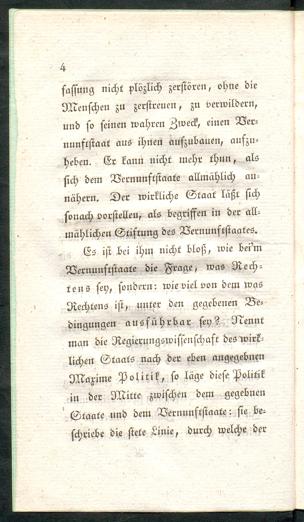 4
fassung nicht plözlich zerstören, ohne die
Menschen zu zerstreuen, zu verwildern,
und so seinen wahren Zweck, einen Ver-
nunftstaat aus ihnen aufzubauen, aufzu-
heben. Er kann nicht mehr thun, als
sich dem Vernunftstaate allmählich an-
nähern. Der wirkliche Staat läßt sich
sonach vorstellen, als begriffen in der all-
mählichen Stiftung des Vernunftstaates.
Es ist bei ihm nicht bloß, wie beim
Vernunftstaate die Frage, was Rech-
tens sey, sondern: wie viel von dem was
Rechtens ist, unter den gegebenen Be-
dingungen ausführbar sey? Nennt
man die Regierungswissenschaft des wirk-
lichen Staats nach der eben angegebnen
Maxime Politik, so läge diese Politik
in der Mitte zwischen dem gegebnen
Staate und dem Vernunftstaate: sie be-
schriebe die stete Linie, durch welche der